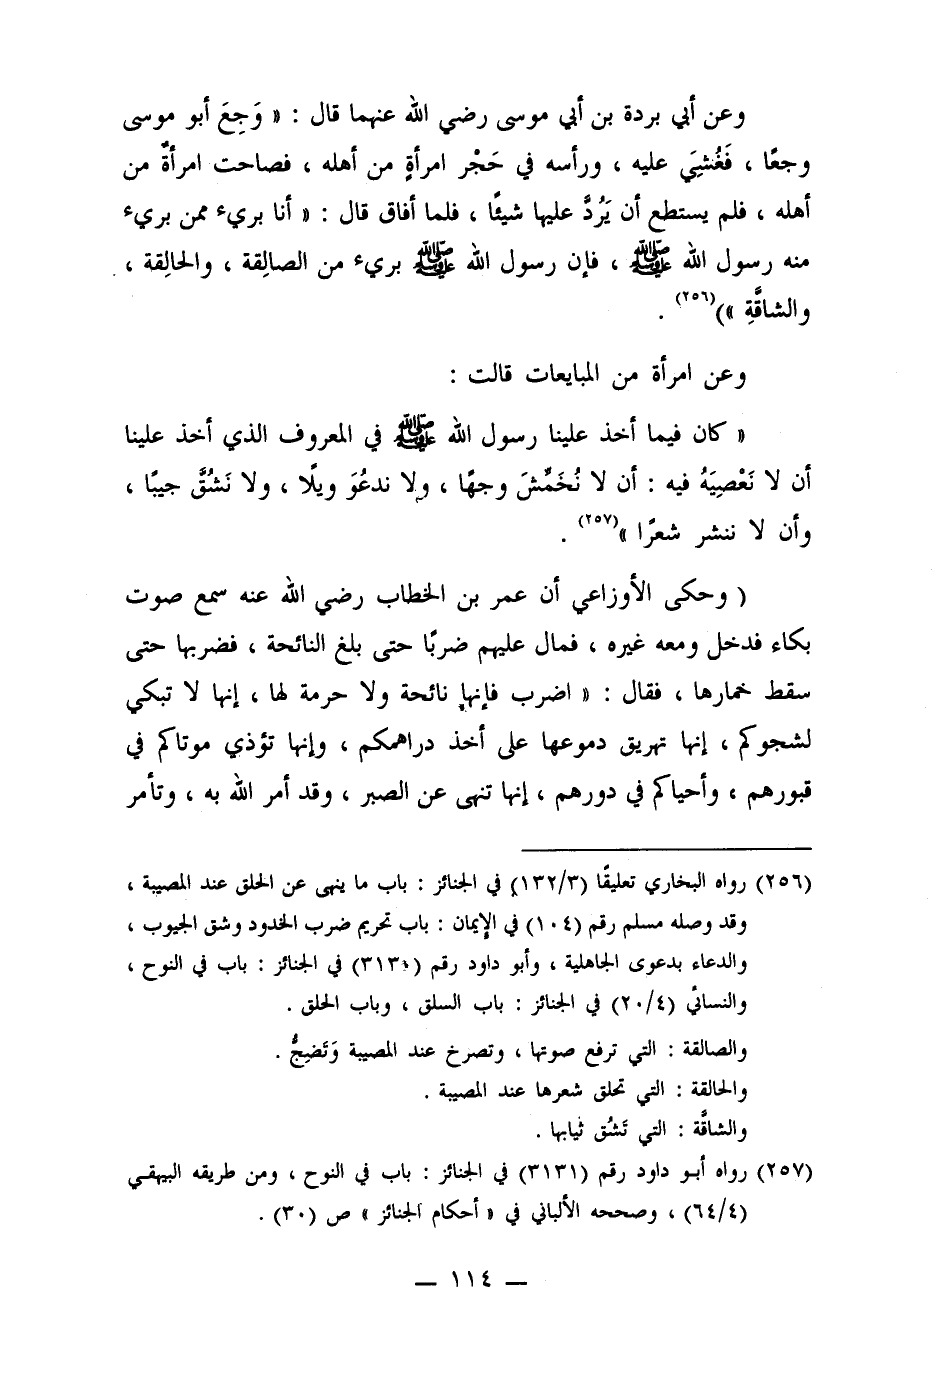 وعن أبي بردة بن أبي موسى رضي الله عنهما قال : « وَجِعَ أبو موسى
وجعًا ، فَغُشِيَ عليه ، ورأسه في حَجْر امرأةٍ من أهله ، فصاحت امرأةٌ من
أهله ، فلم يستطع أن يَرُدَّ عليها شيئًا ، فلما أفاق قال : « أنا بريء ممن بريء
منه رسول الله ﷺ ، فإن رسول الله ﷺ بريء من الصالِقة ، والحالِقة ،
والشاقَّةِ »)(٢٥٦) .
وعن امرأة من المبايعات قالت :
« كان فيما أخذ علينا رسول الله ﷺ في المعروف الذي أخذ علينا
أن لا نَعْصِيَهُ فيه : أن لا نُخَمِّشَ وجهًا ، ولا ندعُوَ ويلًا ، ولا نَشُقَّ جيبًا ،
وأن لا ننشر شعرًا »(٢٥٧) .
( وحكى الأوزاعي أن عمر بن الخطاب رضي الله عنه سمع صوت
بكاء فدخل ومعه غيره ، فمال عليهم ضربًا حتى بلغ النائحة ، فضربها حتى
سقط خمارها ، فقال : « اضرب فإنها نائحة ولا حرمة لها ، إنها لا تبكي
لشجوكم ، إنها تهريق دموعها على أخذ دراهمكم ، وإنها تؤذي موتاكم في
قبورهم ، وأحياكم في دورهم ، إنها تنهى عن الصبر ، وقد أمر الله به ، وتأمر
(٢٥٦) رواه البخاري تعليقًا (١٣٢/٣) في الجنائز : باب ما ينهى عن الحلق عند المصيبة ،
وقد وصله مسلم رقم (١٠٤) في الإيمان : باب تحريم ضرب الخدود وشق الجيوب ،
والدعاء بدعوى الجاهلية ، وأبو داود رقم (٣١٣٠) في الجنائز : باب في النوح ،
والنسائي (٢٠/٤) في الجنائز : باب السلق ، وباب الحلق .
والصالقة : التي ترفع صوتها ، وتصرخ عند المصيبة وَتَضِجُّ .
والحالقة : التي تحلق شعرها عند المصيبة .
والشاقَّة : التي تَشُق ثيابها .
(٢٥٧) رواه أبو داود رقم (٣١٣١) في الجنائز : باب في النوح ، ومن طريقه البيهقي
(٦٤/٤) ، وصححه الألباني في « أحكام الجنائز » ص (٣٠) .
— ١١٤ —